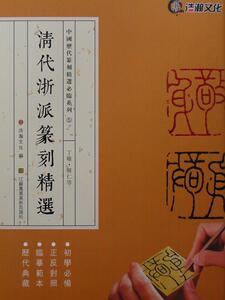 浩瀚文化
中國歷代篆刻精選必臨系列⑤
清代浙派篆刻精選
丁敬、蔣仁等
浩瀚文化 編
江蘇鳳凰美術出版社
初學必備
正反對照
臨摹範本
歷代典藏